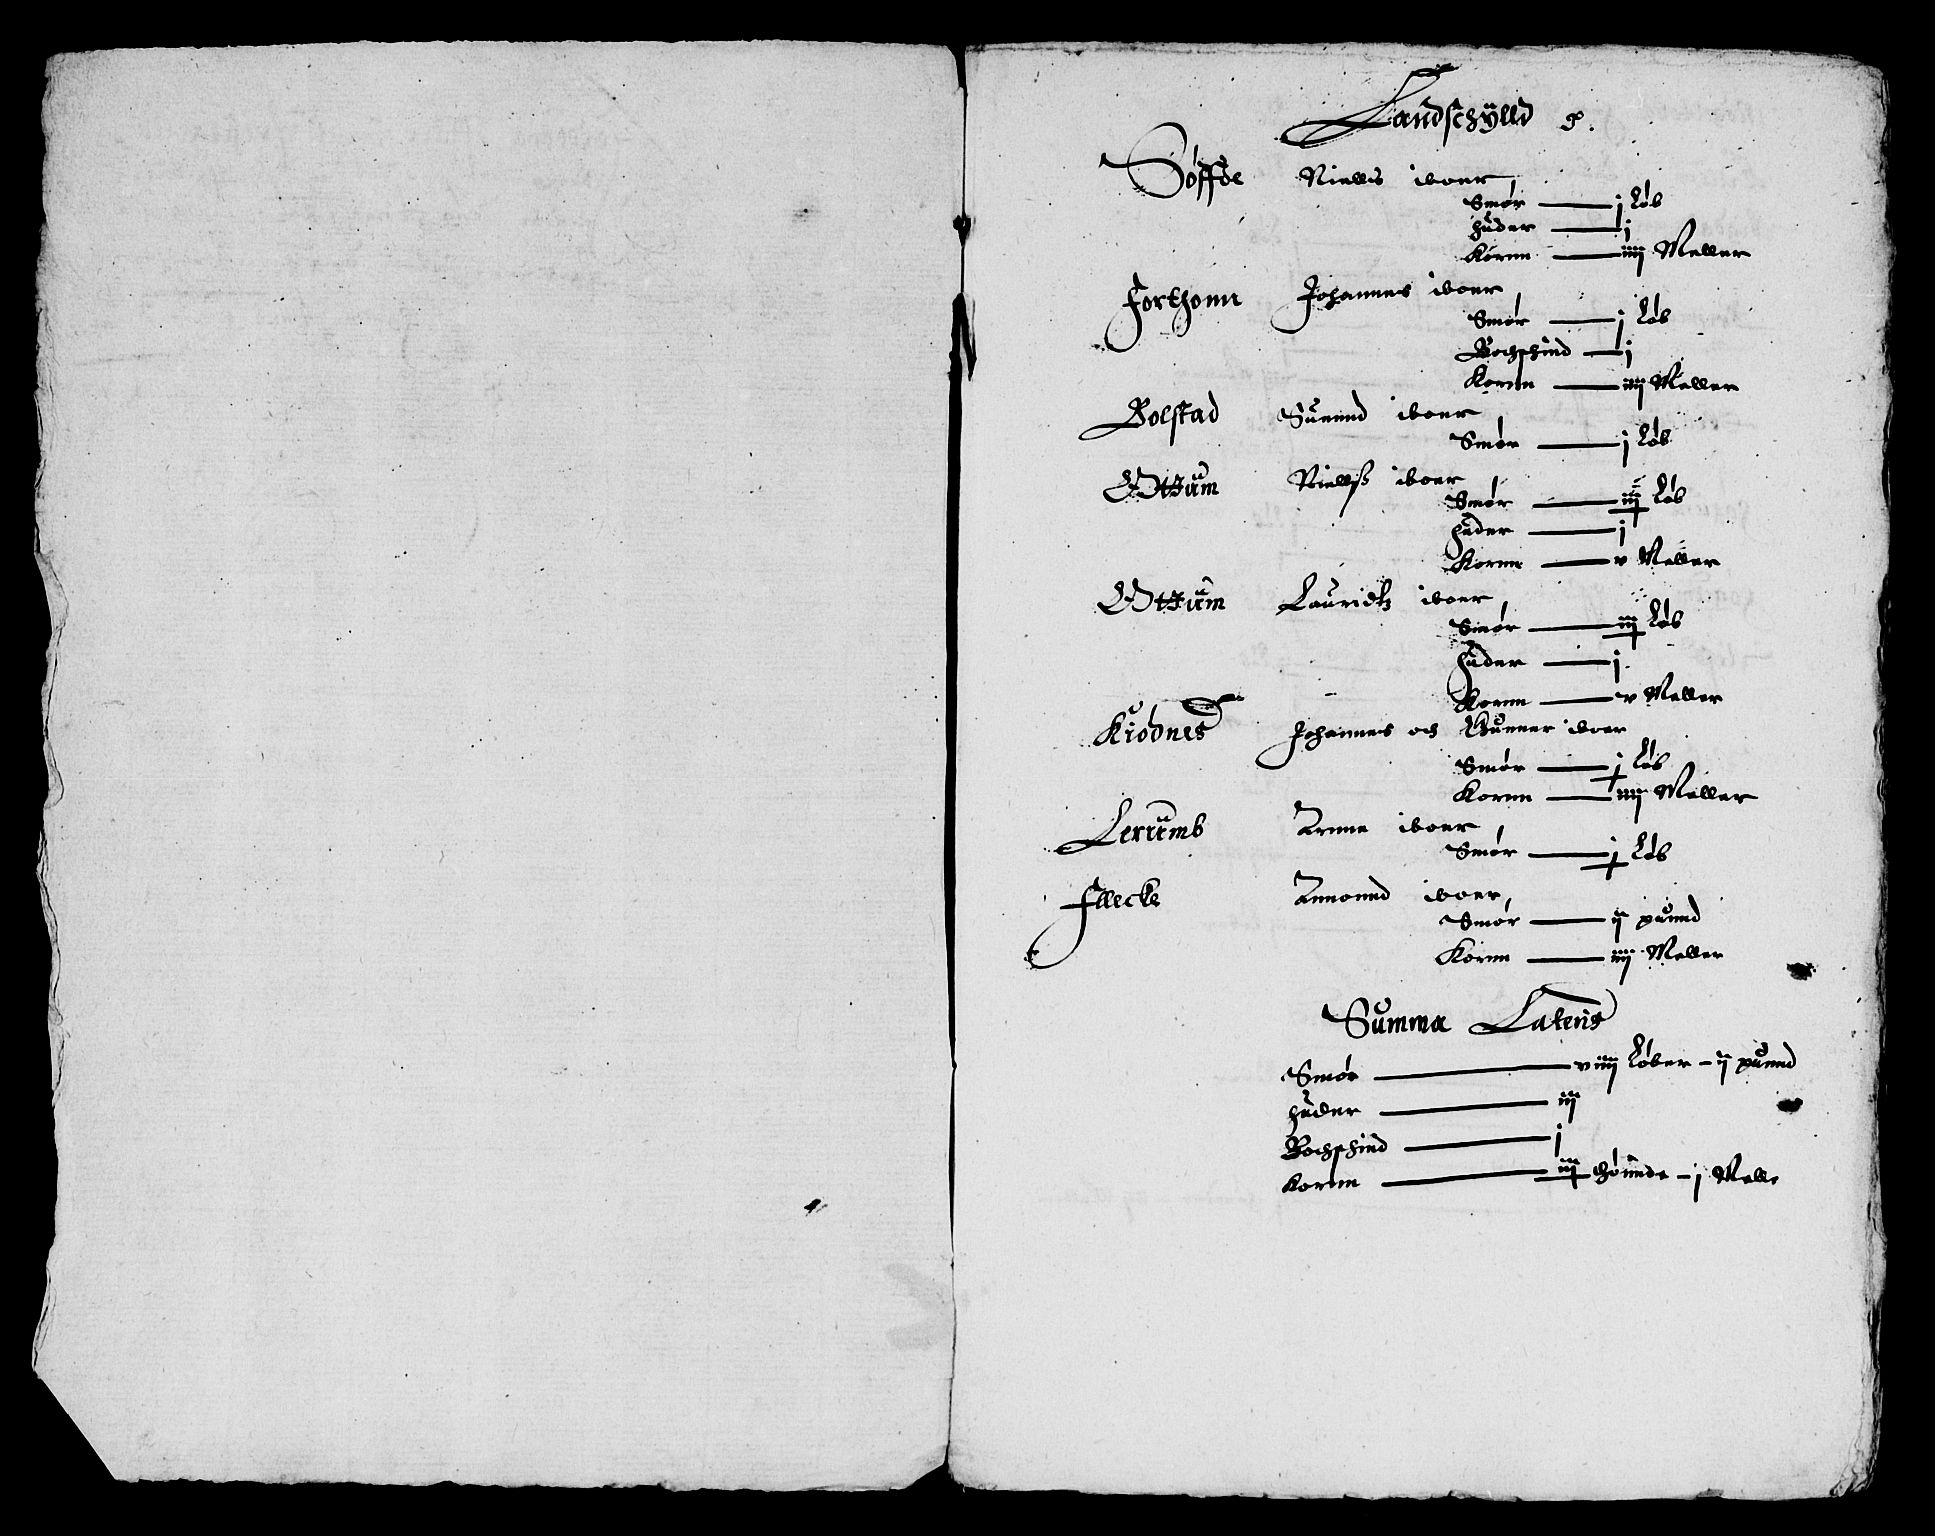 Landschÿlld
Søffde Niells iboer,
Smør — j Løb
huder — j
Kornn — iiij Meller
Forthonn Johannes iboer,
Smør — j Løb
Bochschind — j
Kornn — iiij Meller
Bolstad Suennd iboer,
Smør — j Løb
Ottum Niellß iboer
Smør — iij Løb
huder — j
Kornn — v Meller
Ottum Lauridtz iboer,
Smør — iij Løb
huder — j
Kornn — v Meller
Kiødnes Johannes och Gunner iboer
Smør — j Løb
Kornn — iiij Meller
Lerumb Arnne iboer,
Smør — j Løb
Fllecke Amonnd iboer,
Smør — ij pund
Kornn — iiij Meller
Summa Lateris
Smør — viiij Løber – ij pund
huder — iij
Bochschind — j
Kornn — iij thønnde – j Melle